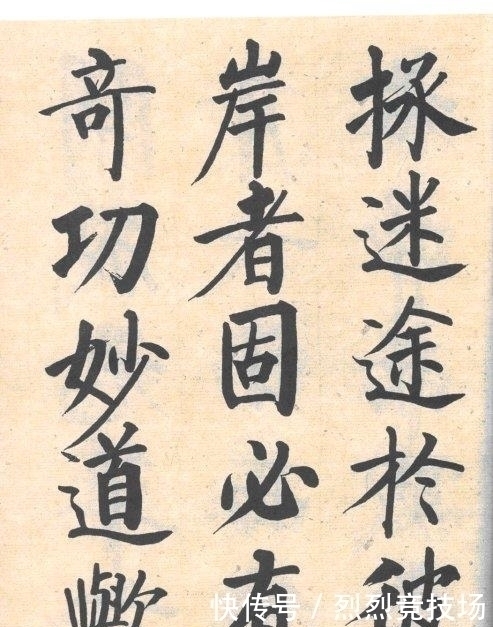 拯迷途於彼
岸者固必有
奇功妙道歟
快传号 / 烈烈竞技场